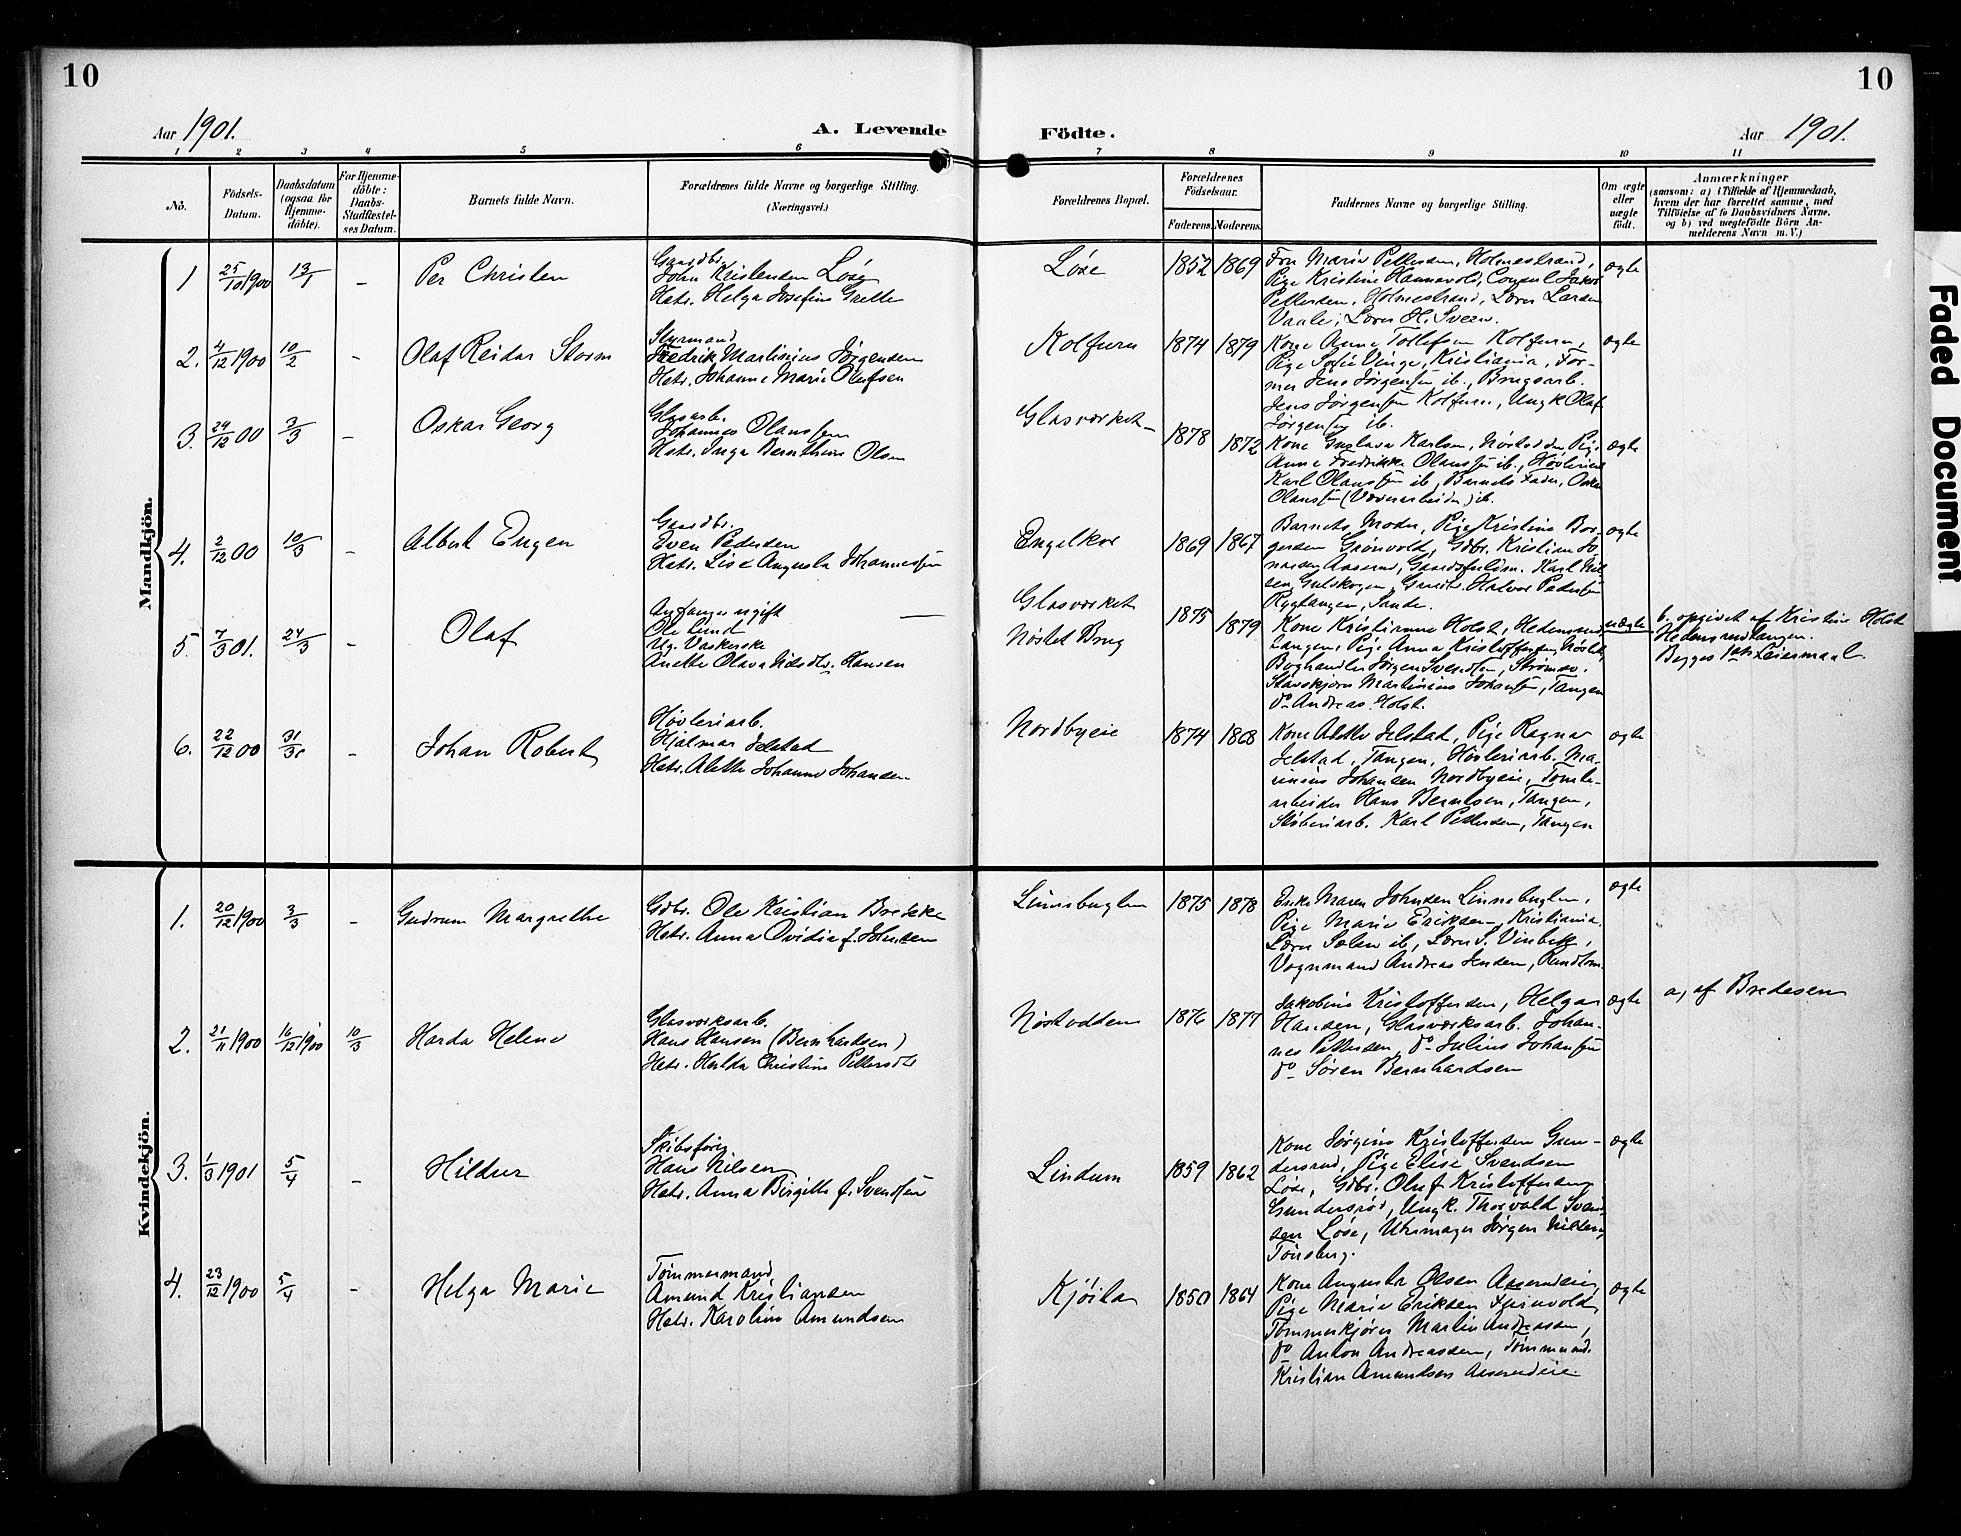 10
10
Aar 1901.
A. Levende
Födte.
Aar 1901.
1 2 3 4 5 6 7 8 9 10 11
No.
Födsels-
Datum.
Daabsdatum
(ogsaa for
Hjemme-
döbte).
For Hjemme-
döbte:
Daabs-
Stadfæstel-
ses Datum.
Barnets fulde Navn.
Forældrenes fulde Navne og borgerlige Stilling.
(Næringsvei.)
Forældrenes Bopæl.
Forældrenes
Födselsaar.
Faderens. Moderens.
Faddernes Navne og borgerlige Stilling.
Om ægte
eller
uægte
födt.
Anmærkninger
(saasom: a) i Tilfælde af Hjemmedaab,
hvem der har forrettet samme, med
Tilföielse af to Daabsvidners Navne.
og b) ved uægtefödte Börn An-
melderens Navn m. V.)
Mandkjön.
1 25/10 1900 13/1 - Per Christen
Gaardbr.
John Kristensen Løse
Hstr. Helga Josefine Grette
Løse 1852 1869
Fru Marie Pettersen, Holmestrand,
Pige Kristine Hannevold, Consul Jakob
Pettersen, Holmestrand, Lærer Larsen
Vaale, Lærer H. Sverw.
ægte
2. 4/12 1900 10/2 - Olaf Reidar Storm
Styrmand
Fredrik Martinius Jørgensen
Hstr. Johanne Marie Olufsen
Kolfuru 1874 1879
Kone Anne Tollefsen Kolfuru,
Pige Sofie Vinge, Kristiania, For-
mer Jens Jørgensen ib., Brugsarb.
Jens Jørgensen Kolfuru, Ungk Olaf
Jørgensen ib.
ægte
3. 24/12 00 3/3 - Oskar Georg
Glasarb.
Johannes Olaussen
Hstr. Inga Bernthine Olsen
Glasværket 1878 1872
Kone Gustava Karlsen, Nøstodden, Pige
Anne Fredrikke Olaussen ib., Høvleriarb
Karl Olaussen ib, Barnets Fader, Oskar
Olaussen (Væverarbeider) ib.
ægte
4. 2/12 00 10/3 - Albert Eugen
Gaardbr.
Even Pedersen
Hstr. Lise Augusta Johannessen
Engelkor 1869 1867
Barnets Moder, Pige Kristine Bor-
gersen Grønvold, Gdbr. Kristian Jo-
nassen Aaserud, Karl Nil-
sen Guldkogen, Halvor Pedersen
Rygtangen, Sande.
ægte
5. 7/3 01. 24/3 - Olaf
Anfanger ugift
Ole Lund
Ug. Vaskerske
Anette Olava Nilsdtr. Hansen
Glasværket
Nøstet Brug
1875 1879
Kone Kristianne Holst, Hedensrud-
tangen, Pige Anna Kristoffersen, Nøstet,
Boghandler Jørgen Svendsen, Strømsø.
Stavskjører Martinius Johansen, Tangen
do Andreas Holst.
uægte
b, opgivet af Kristine Holst
Hedensrudtangen.
Begges 1ste Leiermaal.
6. 22/12 00 31/3 - Johan Robert
Høvleriarb.
Hjalmar Jelstad
Hstr. Alette Johanne Johansen
Nordbyeie 1874 1868
Kone Alette Jelstad, Pige Ragna
Jelstad, Tangen, Høvleriarb. Ma-
rinius Johansen Nordbyeie, Tomte-
arbeider Hans Berntsen, Tangen,
Støberiarb. Karl Pettersen, Tangen
ægte
Kvindekjön.
1. 20/12 1900 3/3 - Gudrun Margrethe
Gdbr. Ole Kristian Brekke
Hstr. Anna Ovidia f. Johnsen
Linnsbuglen 1875 1878
Enke Maren Johnsen Linnsbuglen,
Pige Marie Eriksen, Kristiania
Lærer Solem ib, Lærer S. Vinbek,
Vognmand Andreas Jensen, Rundtom.
ægte
2. 21/11 1900 16/12 1900 10/3 Harda Helene
Glasværksarb.
Hans Hansen (Bernhardsen)
Hstr. Hulda Christine Pettersdtr
Nøstodden 1876 1877
Jakobine Kristoffersen, Helga
Hansen, Glasværksarb. Johan-
nes Pettersen, do Julius Johansen
do Søren Bernhardsen
ægte
a, af Bredesen
3. 1/3 1901 5/4 - Hildur
Skibsfører
Hans Nilsen
Hstr. Anna Birgitte f. Svendsen
Lindum 1859 1862
Kone Jørgine Kristoffersen Gun-
dersrud, Pige Elise Svendsen
Løse, Gdbr. Oluf Kristoffersen
Gundersrød, Ungk. Thorvald Svend-
sen Løse, Uhrmager Jørgen Nilsen,
Tönsberg.
ægte
4. 23/12 1900 5/4 - Helga Marie
Tømmermand
Amund Kristiansen
Hstr. Karoline Amundsen
Kjöila 1850 1864
Kone Augusta Olsen Aaserudeie,
Pige Marie Eriksen
Tømmerkjører Martin Andreassen,
do Anton Andreassen, Tømmermd.
Kristian Amundsen Aaserudeie.
ægte
Faded Document